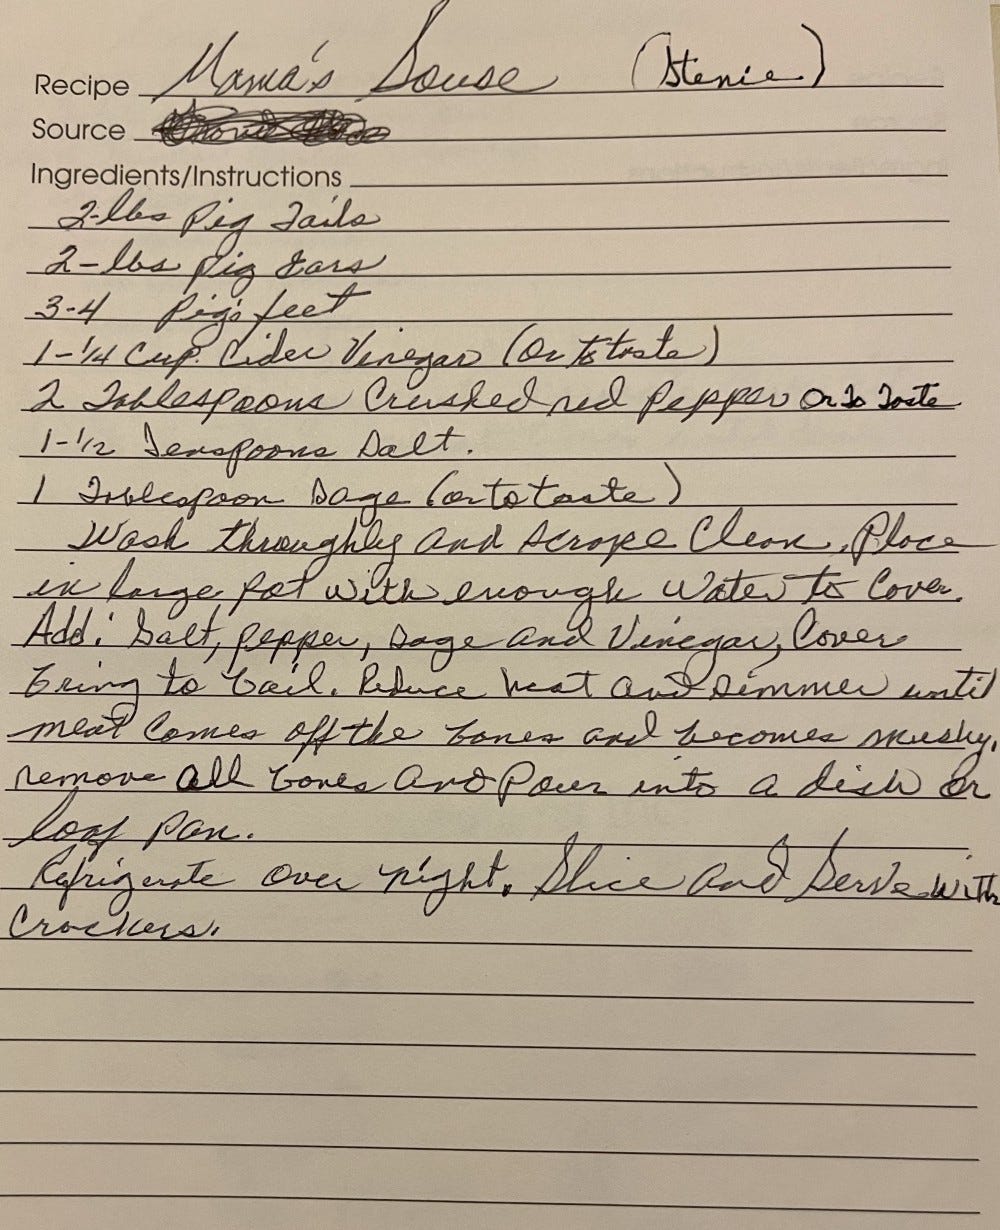 Recipe Mama's Souse (Stenie)
Source
Ingredients/Instructions
2-lbs Pig Tails
2-lbs pig Ears
3-4 Pig's feet
1-1/4 Cup. Cider Vinegar (Or to taste)
2 Tablespoons Crushed red Pepper Or To Taste
1-1/2 Teaspoons Salt.
1 Tablespoon Sage (or to taste)
Wash throughly and scrape Clean. Place
in large pot with enough Water to Cover.
Add: Salt, pepper, sage and Vinegar, Cover
bring to boil. Reduce heat and simmer until
meat Comes off the bones and becomes mushy.
remove all bones and Pour into a dish or
loaf pan.
Refrigerate over night. Slice and Serve with
Crackers.